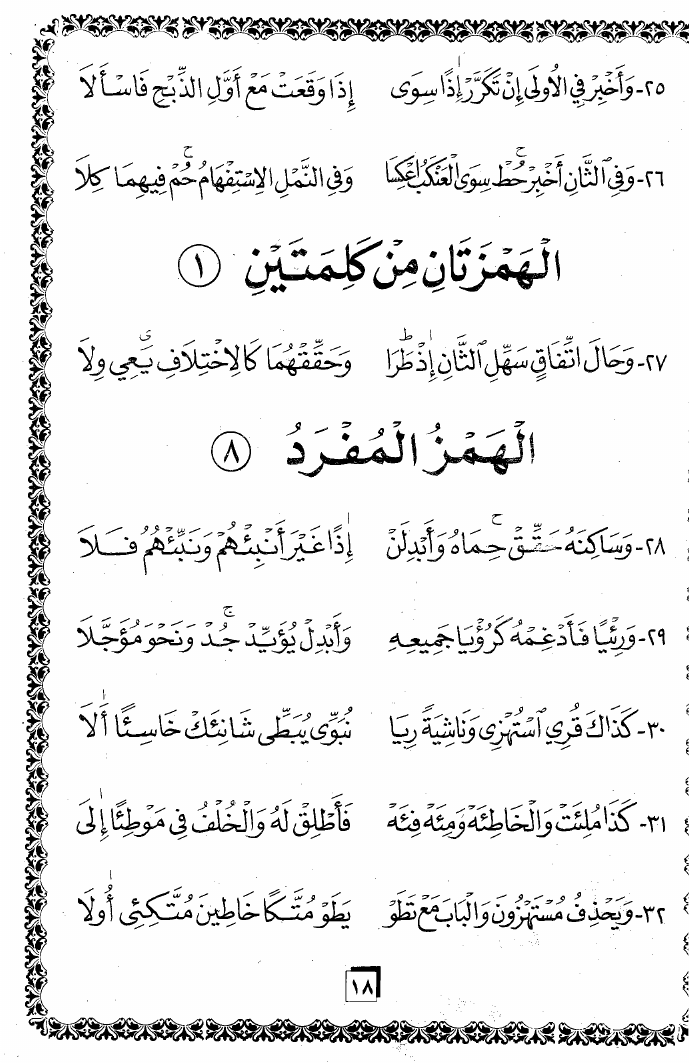 ٢٥- وَأَخْبِرْ فِي الْاُولَى إِنْ تَكَرَّرْ إِذًا سِوَى إِذَا وَقَعَتْ مَعْ أَوَّلِ الذِّبْحِ فَاسْأَلَا
٢٦- وَفِي الثَّانِ أَخْبِرْ حُطْ سِوَى الْعَنْكَبُ اعْكِسَا وَفِي النَّمْلِ الِاسْتِفْهَامُ حُمْ فِيهِمَا كِلَا
الْهَمْزَتَانِ مِنْ كَلِمَتَيْنِ (١)
٢٧- وَحَالَ اتِّفَاقٍ سَهِّلِ الثَّانِ إِذْ طَرَا وَحَقِّقْهُمَا كَالِاخْتِلَافِ يَعِي وِلَا
الْهَمْزُ الْمُفْرَدُ (٨)
٢٨- وَسَاكِنَهُ حَقِّقْ حِمَاهُ وَأَبْدِلَنْ إِذًا غَيْرَ أَنْبِئْهُمْ وَنَبِّئْهُمُ فَلَا
٢٩- وَرِئْيًا فَأَدْغِمْهُ كَرُؤْيَا جَمِيعِهِ وَأَبْدِلْ يُؤَيِّدْ جُدْ وَنَحْوَ مُؤَجَّلَا
٣٠- كَذَاكَ قُرِي اسْتُهْزِي وَنَاشِيَةً رِيَا نُبَوِّي يُبَطِّي شَانِئَكْ خَاسِئًا أَلَا
٣١- كَذَا مُلِئَتْ وَالْخَاطِئَهْ وَمِئَهْ فِئَهْ فَأَطْلِقْ لَهُ وَالْخُلْفُ فِي مَوْطِئًا إِلَى
٣٢- وَيَحْذِفُ مُسْتَهْزُونَ وَالْبَابَ مَعْ تَطَوْ يَطَوْ مُتَّكًا خَاطِينَ مُتَّكِئِي أُولَا
١٨